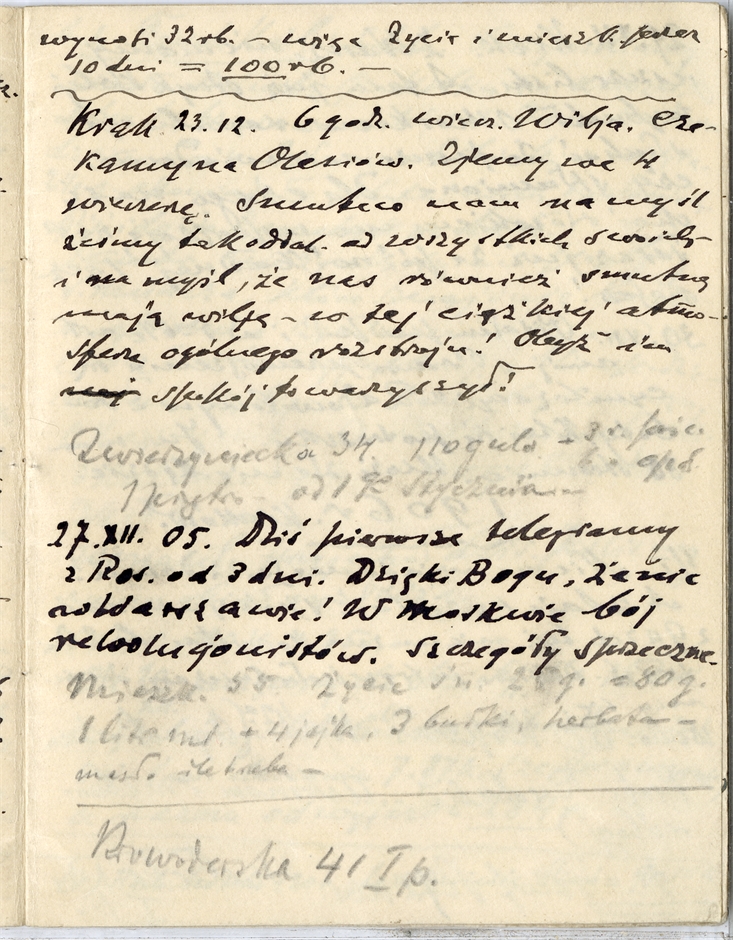 wynosi 32 rb. – więc Życie i mieszk. przez
10 dni = 100 rb. –
Krak 23.12. 6 godz. wiecz. Wilja. Cze-
kamy na Olesiów. Zjemy we 4
wieczerzę. Smutno nam na myśl
żeśmy tak oddal. od wszystkich swoich –
i na myśl, że nas również smutną
mają wilję – w tej ciężkiej atmo-
sferze ogólnego rozstroju! Oby im
spokój towarzyszył!
Zwierzyniecka 34. 110 guld. – 3
1 piętro – od 1go Stycznia –
27.XII. 05. Dziś pierwsze telegramy
z Ros. od 3 dni. Dzięki Bogu, że nic
w Warszawie! W Moskwie bój
rewolucjonistów. Szczegóły sprzeczne.
Mieszk. 55. Życie = 80 g.
1 litr ml. + 4 jajka, 3 bułki, herbata –
masło ile trzeba –
Krowoderska 41 I p.